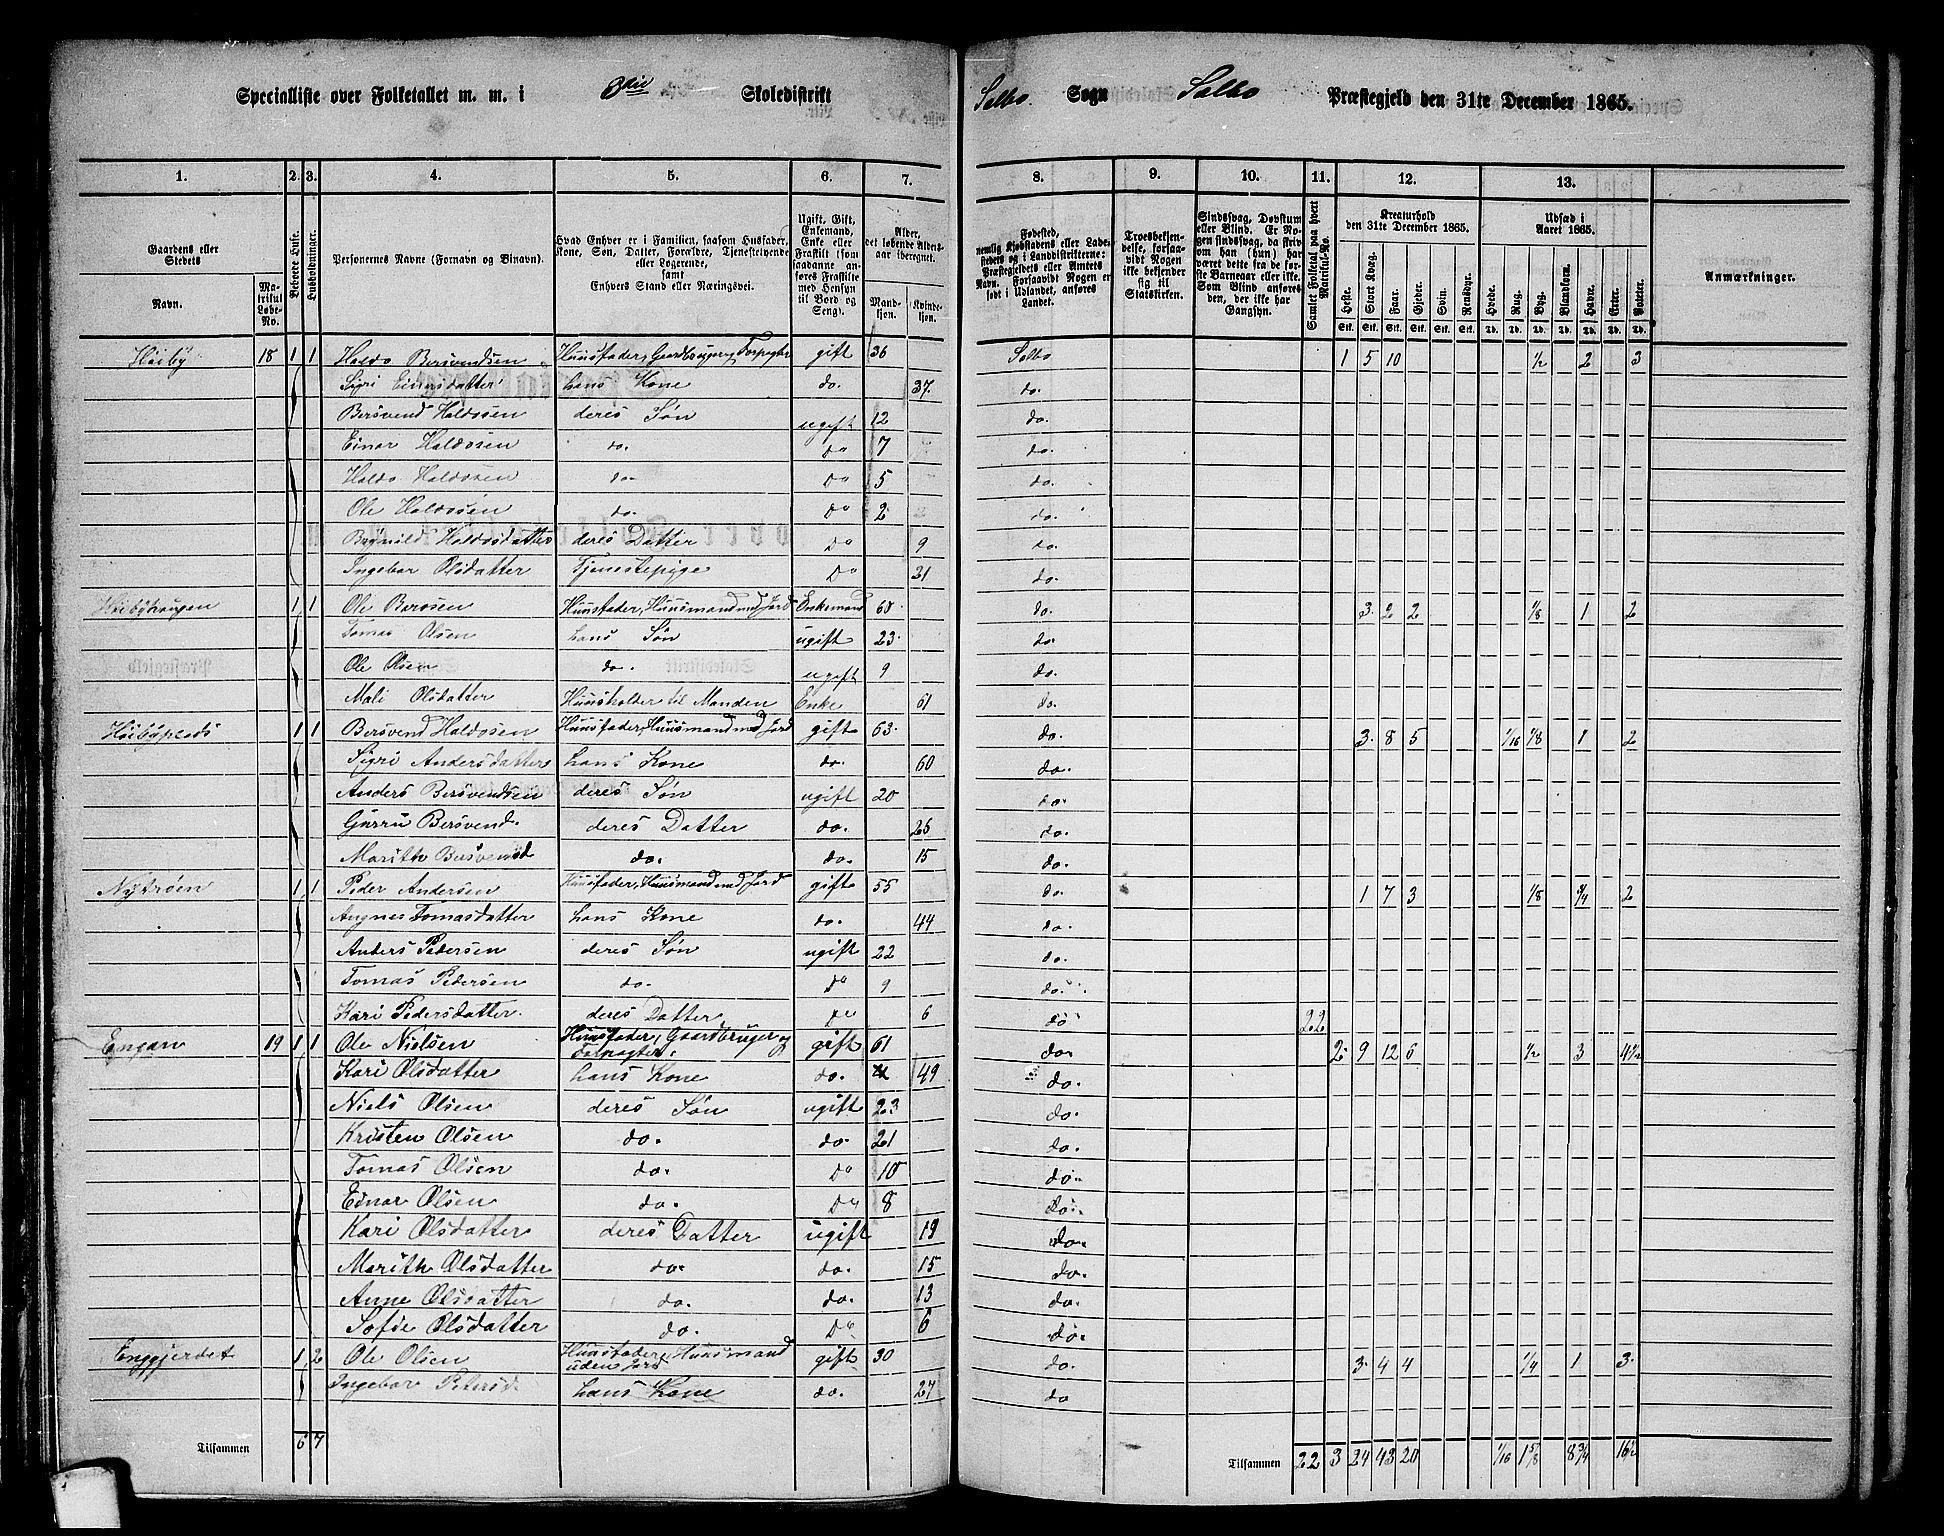 Specialliste over Folketallet m. m. i 3die Skoledistrikt Selbo Sogn Selbo Præstegjeld den 31te December 1865.
1. 2. 3. 4. 5. 6. 7. 8. 9. 10. 11. 12. 13.
Gaardens eller Stedets Navn. Matrikul Løbe-No. Beboede Huse. Husholdninger. Personernes Navne (Fornavn og Binavn). Hvad Enhver er i Familien, saasom Husfader, Kone, Søn, Datter, Forældre, Tjenestetyende eller Logerende, samt Enhvers Stand eller Næringsvei. Ugift, Gift, Enkemand, Enke eller Fraskilt (som saadanne anføres Fraskilte med Hensyn til Bord og Seng). Alder, det løbende Aldersaar iberegnet. Mandkjøn. Kvindekjøn. Fødested, nemlig Kjøbstadens eller Ladestedets og i Landdistrikterne: Præstegjeldets eller Amtets Navn. Forsaavidt Nogen er født i Udlandet, anføres Landet. Troesbekjendelse, forsaavidt Nogen ikke bekjender sig til Statskirken. Sindssvag, Døvstum eller Blind. Er Nogen sindssvag, da skrives om han (hun) har været dette fra de første Barneaar eller ikke. Som Blind anføres den, der ikke har Gangsyn. Samlet Folketal paa hvert Matrikul-No. Kreaturhold den 31te December 1865. Heste. Stort Kvæg. Faar. Gjeder. Svin. Rensdyr. Udsæd i Aaret 1865. Hvede. Rug. Byg. Blandkorn. Havre. Erter. Poteter. Anmærkninger.
Höiby 18 1 1 Haldo Bersvendsen Huusfader, Gaardbruger, gift 36 Selbo 1 5 10 1/2 2 3
Sigri Einarsdatter hans Kone do. 37. do.
Bersvend Haldosen deres Søn ugift 12 do.
Einar Haldosen do. do 7 do.
Haldo Haldosen do. do 5 do.
Ole Haldosen do. do 2 do.
Brynild Haldosdatter deres Datter do 9 do.
Ingebor Olsdatter Tjenestepige do 31 do.
Höibyhaugen 1 1 Ole Berosen Huusfader, Huusmand med Jord Enkemand 65 do. 3 2 2 1/8 1 2
Tomas Olsen hans Søn ugift 23. do.
Ole Olsen do. ugift 9 do.
Mali Olsdatter Huusholder til Manden Enke 61 do.
Höibyplads 1 1 Bersvend Haldosen Huusfader, Huusmand med Jord gift 63. do. 3. 8 5 1/16 1/8 1 2
Sigri Andersdatter hans Kone do. 60 do.
Anders Bersvendsen deres Søn ugift 20 do.
Gurru Bersvend. deres Datter do. 25 do.
Marith Bersvensd do. do. 15 do.
Nytröen 1 1 Peder Andersen Huusfader, Huusmand med Jord gift 55 do. 1 7 3 1/8 3/4 2
Angnes Tomasdatter hans Kone do. 44 do.
Anders Pedersen deres Søn ugift 22 do.
Tomas Pedersen do. do 9 do.
Kari Pedersdatter. deres Datter do 6 do 22
Engan 19 1 1 Ole Nielsen Huusfader, Gaardbruger og gift 61 do. 2 9 12 6 1/2 3 4 1/2
Kari Olsdatter hans Kone do. 49 do.
Niels Olsen deres Søn ugift 23 do.
Kristen Olsen do. do. 21 do.
Tomas Olsen do. do 10 do.
Einar Olsen do. do 8 do.
Kari Olsdatter deres Datter ugift 19 do.
Marith Olsdatter do. do. 15 do.
Anne Olsdatter do. do. 13 do.
Sofie Olsdatter do. do 6 do.
Enggjerdet 1 2 Ole Olsen Huusfader, Huusmand uden Jord gift 30 do. 3. 4 4 1/4 1 3.
Ingebor Petersd. hans Kone do. 27 do
Tilsammen 6 7 Tilsammen 22 3 24 43 20 1/16 1 5/8 8 3/4 16 1/2